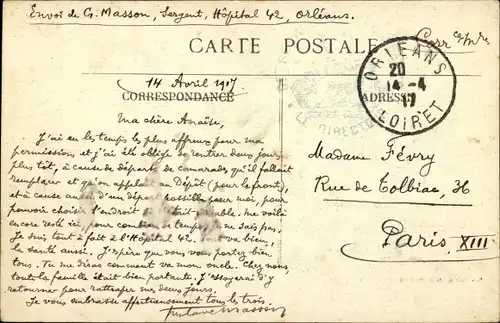 Envoi de G. Masson, Sergent, Hôpital 42, Orléans.
CARTE POSTALE
ORLEANS
20
14-4
17
LOIRET
14 Avril 1917
CORRESPONDANCE
ADRESSE
DIRECT
Ma chère Anaïse,
J'ai eu les temps les plus affreux pour ma
permission, et j'ai été obligé de rentrer deux jours
plus tôt, à cause de départs de camarades qu'il fallait
remplacer et qu'on appelait au Dépôt (pour le front),
et à cause aussi d'un départ possible pour moi, pour
pouvoir choisir l'endroit me voilà
encore resté ici, pour combien de temps, je ne sais pas.
Je suis tout à fait à l'Hôpital 42. Tout va bien,
la santé aussi. J'espère que vous vous portez bien
tous. Tu me diras comment va mon oncle. Chez nous,
toute la famille était bien portante. J'essayerai d'y
retourner pour rattraper mes deux jours.
Je vous embrasse affectueusement tous les trois.
Gustave Masson
Madame Févry
Rue de Tolbiac, 36
Paris XIII